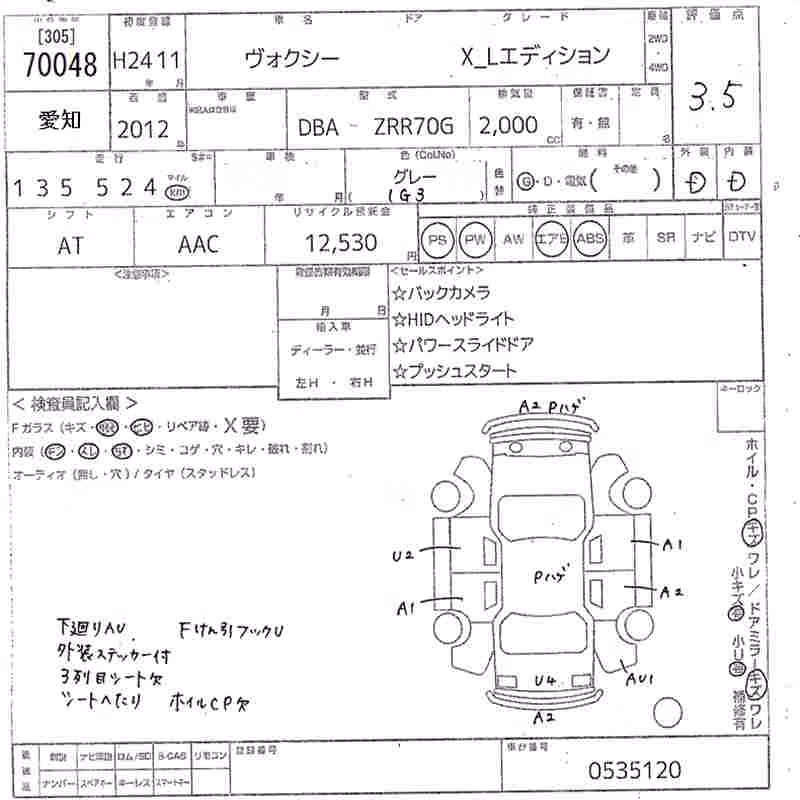 [305] 初度登録 車名 ドア グレード 評価点
70048 H24 11 ヴォクシー X_Lエディション 2WD・4WD
年 月 3.5
型式 排気量 保証書 定員
愛知 2012 年 DBA - ZRR70G 2,000 CC 有・無 名
走行 車検 色(Col.No) 燃料 外装 内装
135 524 マイル km 年 月 グレー ( 1G3 ) 色替 G・D・電気( その他 ) D D
シフト エアコン リサイクル預託金 純正装備品
AT AAC 12,530 円 PS PW AW エアB ABS 革 SR ナビ DTV
<注意事項> 登録書類有効期限 <セールスポイント>
☆バックカメラ
月 日 ☆HIDヘッドライト
輸入車 ☆パワースライドドア
ディーラー・並行
左H・右H ☆プッシュスタート
<検査員記入欄> キーロック
A2 Pハゲ
Fガラス(キズ・ ・ヒビ・リペア跡・X要)
内装( ・ ・ ・シミ・コゲ・穴・キレ・破れ・割れ)
オーディオ(無し・穴)/タイヤ(スタッドレス)
ホイル・CPキズワレ/ドアミラーキズワレ
小キズ有 小U有 補修有
U2 A1
Pハゲ
A1 A2
下廻りAU Fけん引フックU
外装ステッカー付
3列目シート欠
シートへたり ホイルCP欠
U4 AU1
A2
後送品 ナビ ROM/SD B-CAS リモコン 登録番号 車台番号
ナンバー スペアキー キーレス スマートキー
0535120